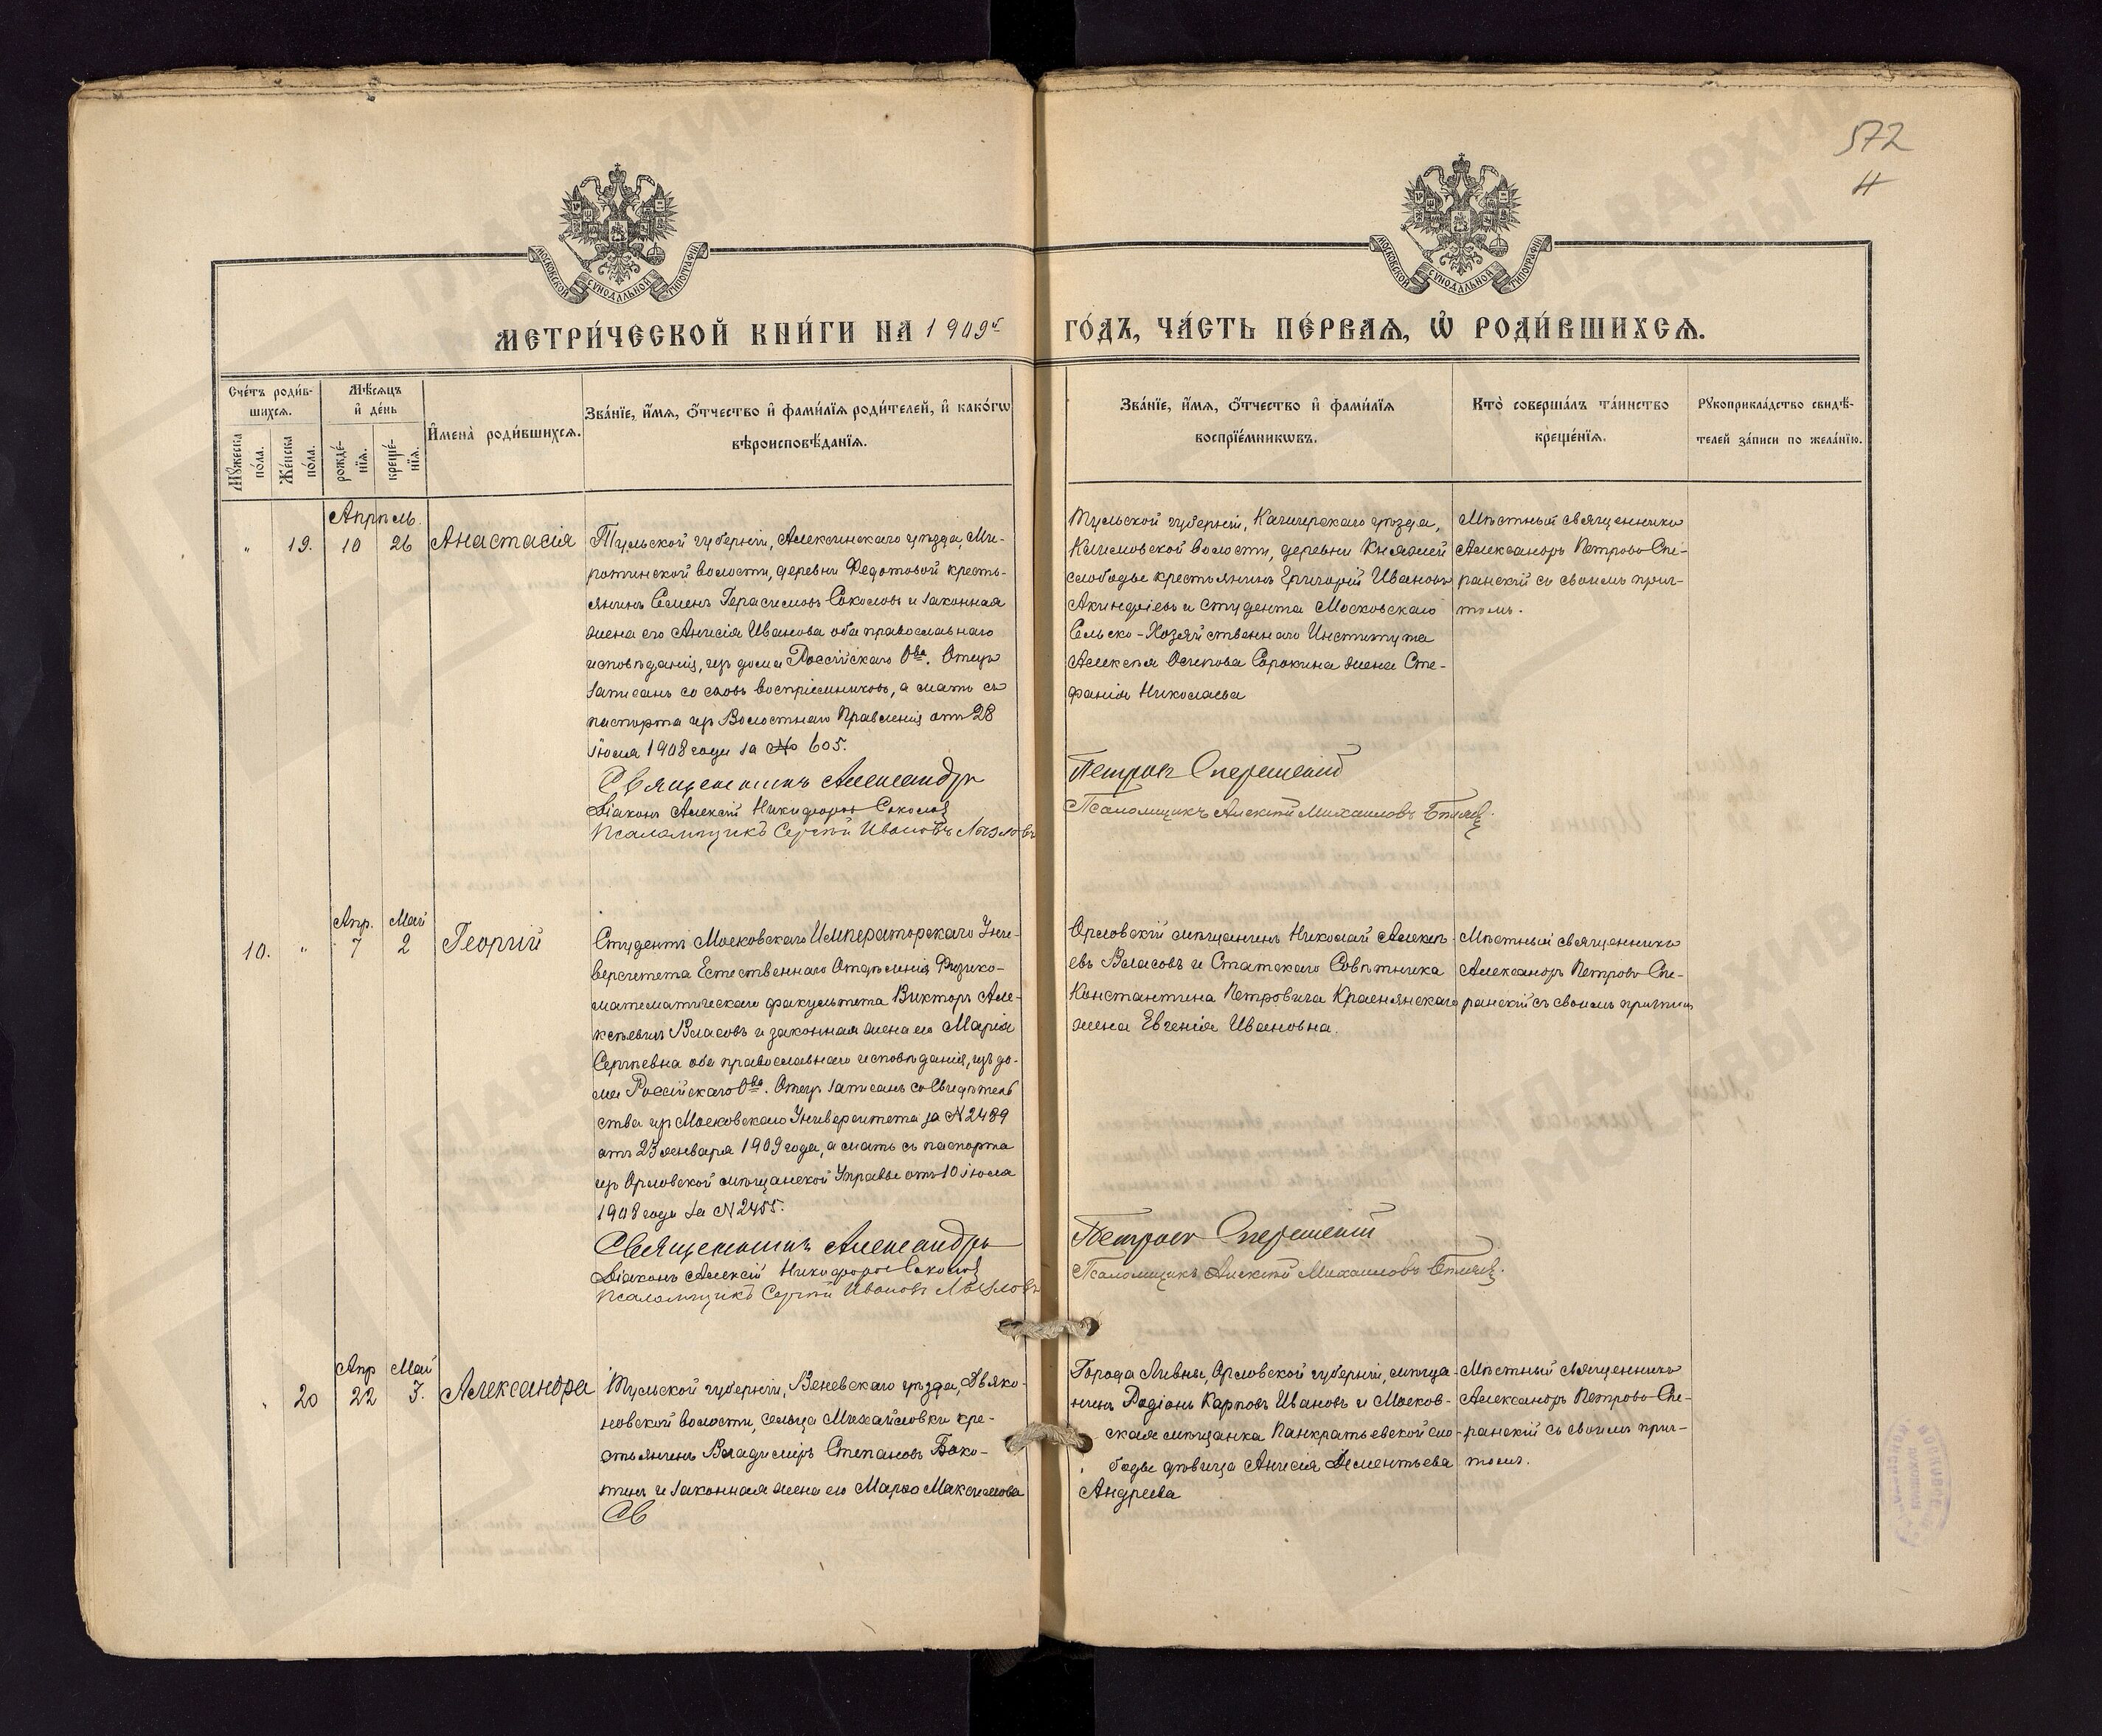 572
4
МОСКОВСКОЙ СѴНОДАЛЬНОЙ ТИПОГРАФІИ
МОСКОВСКОЙ СѴНОДАЛЬНОЙ ТИПОГРАФІИ
МЕТРИ́ЧЕСКОЙ КНИ́ГИ НА 1909 г
ГО́ДЪ, ЧА́СТЬ ПЕ́РВАѦ, Ѡ҆ РОДИ́ВШИХСѦ.
Сче́тъ роди́в-
шихсѧ.
Мѣ́сѧцъ
и҆ де́нь
Мꙋ́жеска по́ла.
Же́нска по́ла.
рожде́-
нїѧ.
креще́-
нїѧ.
И҆мена̀ роди́вшихсѧ.
Зва́нїе, и҆́мѧ, ѻ҆́тчество и҆ фами́лїѧ роди́телей, и҆ како́гѡ
вѣроисповѣ́данїѧ.
Зва́нїе, и҆́мѧ, ѻ҆́тчество и҆ фами́лїѧ
воспрїе́мникѡвъ.
Кто̀ соверша́лъ та́инство
креще́нїѧ.
Рꙋкоприкла́дство свидѣ́-
телей за́писи по жела́нїю.
Апрѣль.
" 19. 10 26 Анастасія
Тульской губерніи, Алексинскаго уѣзда, Ми-
ротинской волости, деревни Федотовой кресть-
янинъ Семенъ Герасимовъ Соколовъ и законная
жена его Анисія Иванова оба православнаго
исповѣданія, изъ дома Россійскаго О-ва. Отецъ
записанъ со словъ воспріемниковъ, а мать съ
паспорта изъ Волостнаго Правленія отъ 28
Іюля 1908 года за № 605.
Священникъ Александръ
Діаконъ Алексій Никифоровъ Соколовъ
Псаломщикъ Сергѣй Ивановъ Лозловъ
Тульской губерніи, Каширскаго уѣзда,
волости, деревни Княжей
слободы крестьянинъ Григорій Ивановъ
Акиндіевъ и студента Московскаго
Сельско-Хозяйственнаго Института
Алексѣя Осипова Сорокина жена Сте-
фанія Николаева
Мѣстный священникъ
Александръ Петровъ Спе-
ранскій со своимъ прич-
томъ.
Петровъ Сперанскій
Псаломщикъ Алексѣй Михаиловъ
Апр. Май
10. " 7 2 Георгій
Студентъ Московскаго Императорскаго Уни-
верситета Естественнаго Отдѣленія Физико-
математическаго факультета Викторъ Але-
ксѣевичъ Власовъ и законная жена его Марія
Сергѣевна оба православнаго исповѣданія, изъ до-
ма Россійскаго О-ва. Отецъ записанъ со Свидѣтель
ства изъ Московскаго Университета за N 2489
отъ 23 января 1909 года, а мать съ паспорта
изъ Орловской мѣщанской Управы отъ 10 іюля
1908 года за N 2455.
Священникъ Александръ
Діаконъ Алексій Никифоровъ Соколовъ
Псаломщикъ Сергѣй Ивановъ Лозловъ
Орловскій мѣщанинъ Николай Алексѣ-
евъ Власовъ и Статскаго Совѣтника
Константина Петровича Краснянскаго
жена Евгенія Ивановна.
Мѣстный священникъ
Александръ Петровъ Спе-
ранскій съ своимъ причтомъ
Петровъ Сперанскій
Псаломщикъ Алексѣй Михаиловъ
Апр Май
" 20 22 3. Александра
Тульской губерніи, Веневскаго уѣзда, Дьяко-
новской волости, сельца Михайловки кре-
стьянинъ Владимиръ Степановъ Боко-
тинъ и законная жена его Марѳа Максимова
Св
Города Ливны, Орловской губерніи, мѣща-
нинъ Родіонъ Карповъ Ивановъ и Москов-
ская мѣщанка Панкратьевской сло-
боды дѣвица Анисія Дементьева
Андреева
Мѣстный священникъ
Александръ Петровъ Спе-
ранскій съ своимъ прич-
томъ.
ГЛАВАРХИВ
МОСКВЫ